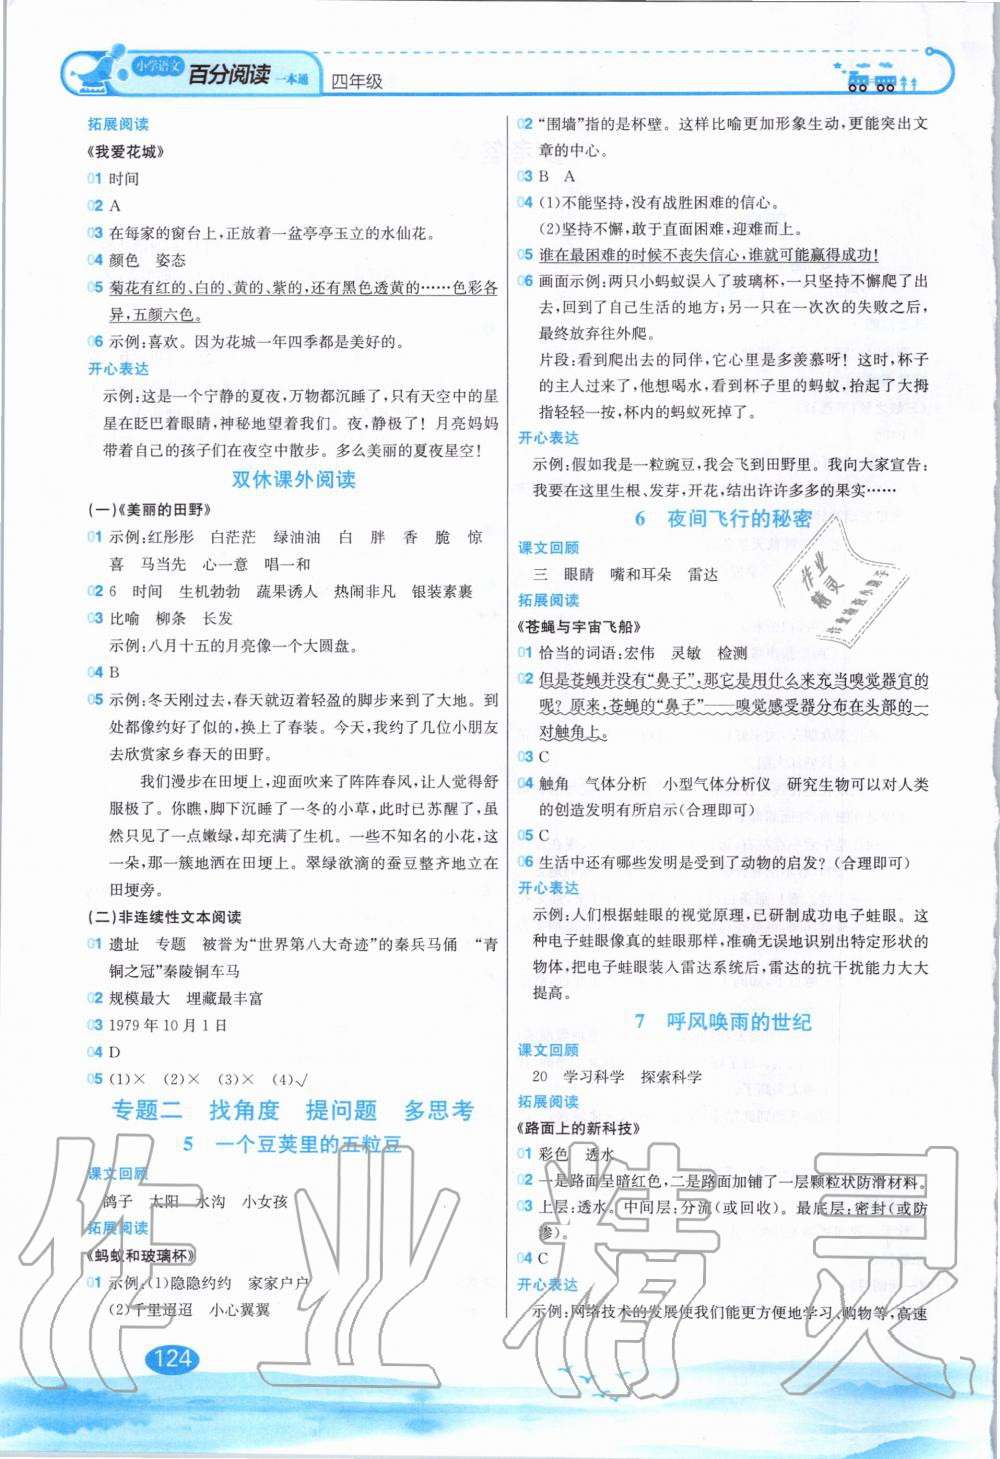 小学语文 百分阅读 一本通 四年级
拓展阅读
《我爱花城》
01 时间
02 A
03 在每家的窗台上,正放着一盆亭亭玉立的水仙花。
04 颜色 姿态
05 菊花有红的、白的、黄的、紫的,还有黑色透黄的……色彩各
异,五颜六色。
06 示例:喜欢。因为花城一年四季都是美好的。
开心表达
示例:这是一个宁静的夏夜,万物都沉睡了,只有天空中的星
星在眨巴着眼睛,神秘地望着我们。夜,静极了!月亮妈妈
带着自己的孩子们在夜空中散步。多么美丽的夏夜星空!
双休课外阅读
(一)《美丽的田野》
01 示例:红彤彤 白茫茫 绿油油 白 胖 香 脆 惊
喜 马当先 心一意 唱一和
02 6 时间 生机勃勃 蔬果诱人 热闹非凡 银装素裹
03 比喻 柳条 长发
示例:八月十五的月亮像一个大圆盘。
04 B
05 示例:冬天刚过去,春天就迈着轻盈的脚步来到了大地。到
处都像约好了似的,换上了春装。今天,我约了几位小朋友
去欣赏家乡春天的田野。
我们漫步在田埂上,迎面吹来了阵阵春风,让人觉得舒
服极了。你瞧,脚下沉睡了一冬的小草,此时已苏醒了,虽
然只见了一点嫩绿,却充满了生机。一些不知名的小花,这
一朵,那一簇地洒在田埂上。翠绿欲滴的蚕豆整齐地立在
田埂旁。
(二)非连续性文本阅读
01 遗址 专题 被誉为“世界第八大奇迹”的秦兵马俑 “青
铜之冠”秦陵铜车马
02 规模最大 埋藏最丰富
03 1979年10月1日
04 D
05 (1)× (2)× (3)× (4)√
专题二 找角度 提问题 多思考
5 一个豆荚里的五粒豆
课文回顾
鸽子 太阳 水沟 小女孩
拓展阅读
《蚂蚁和玻璃杯》
01 示例:(1)隐隐约约 家家户户
(2)千里迢迢 小心翼翼
124
02 “围墙”指的是杯壁。这样比喻更加形象生动,更能突出文
章的中心。
03 B A
04 (1)不能坚持,没有战胜困难的信心。
(2)坚持不懈,敢于直面困难,迎难而上。
05 谁在最困难的时候不丧失信心,谁就可能赢得成功!
06 画面示例:两只小蚂蚁误入了玻璃杯,一只坚持不懈爬了出
去,回到了自己生活的地方;另一只在一次次的失败之后,
最终放弃往外爬。
片段:看到爬出去的同伴,它心里是多羡慕呀!这时,杯子
的主人过来了,他想喝水,看到杯子里的蚂蚁,抬起了大拇
指轻轻一按,杯内的蚂蚁死掉了。
开心表达
示例:假如我是一粒豌豆,我会飞到田野里。我向大家宣告:
我要在这里生根、发芽,开花,结出许许多多的果实……
6 夜间飞行的秘密
课文回顾
三 眼睛 嘴和耳朵 雷达
拓展阅读
《苍蝇与宇宙飞船》
01 恰当的词语:宏伟 灵敏 检测
02 但是苍蝇并没有“鼻子”,那它是用什么来充当嗅觉器官的
呢?原来,苍蝇的“鼻子”——嗅觉感受器分布在头部的一
对触角上。
03 C
04 触角 气体分析 小型气体分析仪 研究生物可以对人类
的创造发明有所启示(合理即可)
05 C
06 生活中还有哪些发明是受到了动物的启发?(合理即可)
开心表达
示例:人们根据蛙眼的视觉原理,已研制成功电子蛙眼。这
种电子蛙眼像真的蛙眼那样,准确无误地识别出特定形状的
物体,把电子蛙眼装入雷达系统后,雷达的抗干扰能力大大
提高。
7 呼风唤雨的世纪
课文回顾
20 学习科学 探索科学
拓展阅读
《路面上的新科技》
01 彩色 透水
02 一是路面呈暗红色,二是路面加铺了一层颗粒状防滑材料。
03 上层:透水。中间层:分流(或回收)。最底层:密封(或防
渗)。
04 C
开心表达
示例:网络技术的发展使我们能更方便地学习、购物等,高速
作业精灵
作业
精灵